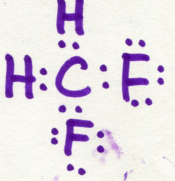 H
H:C:F:
F